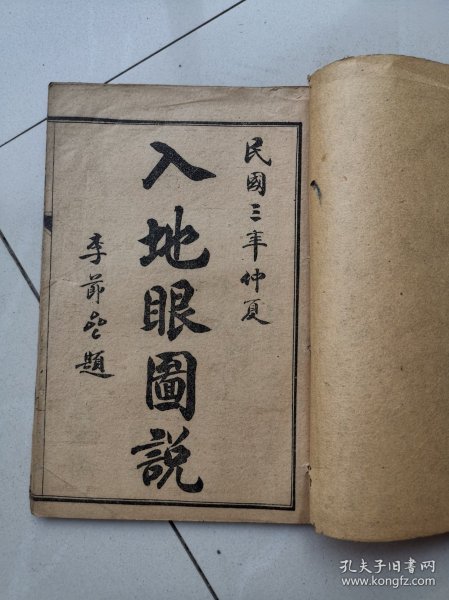 民國三年仲夏
入地眼圖說
李節齋題
孔夫子旧书网
www.kongfz.com